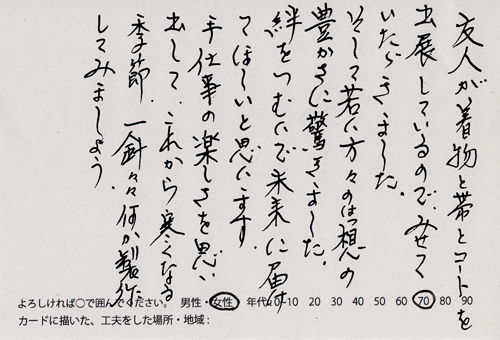 友人が着物と帯とコートを
出展しているので、みせて
いただきました。
そして若い方々の発想の
豊かさに驚きました。
絆をつむいで未来に届け
てほしいと思います。
手仕事の楽しさを思い
出して、これから寒くなる
季節、一針々々何か製作
してみましょう。
よろしければ○で囲んでください。 男性・女性 年代:0 10 20 30 40 50 60 70 80 90
カードに描いた、工夫をした場所・地域: